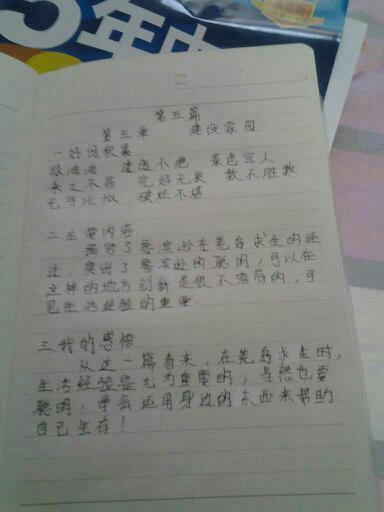 5年中
第五篇
第五章 建设家园
一 好词积累
绿油油 连绵不绝 景色宜人
来之不易 完好无果 数不胜数
无可比拟 模糊不堪
二 主要内容
描写了鲁滨逊在荒岛求生的经
过，突出了鲁滨逊的聪明，可以在
这样的地方创新是很不容易的，可
见生活经验的重要。
三、我的感悟
从这一篇看来，在荒岛求生时，
生活经验是尤为重要的，当然也要
聪明，学会运用身边的东西来帮助
自己生存！